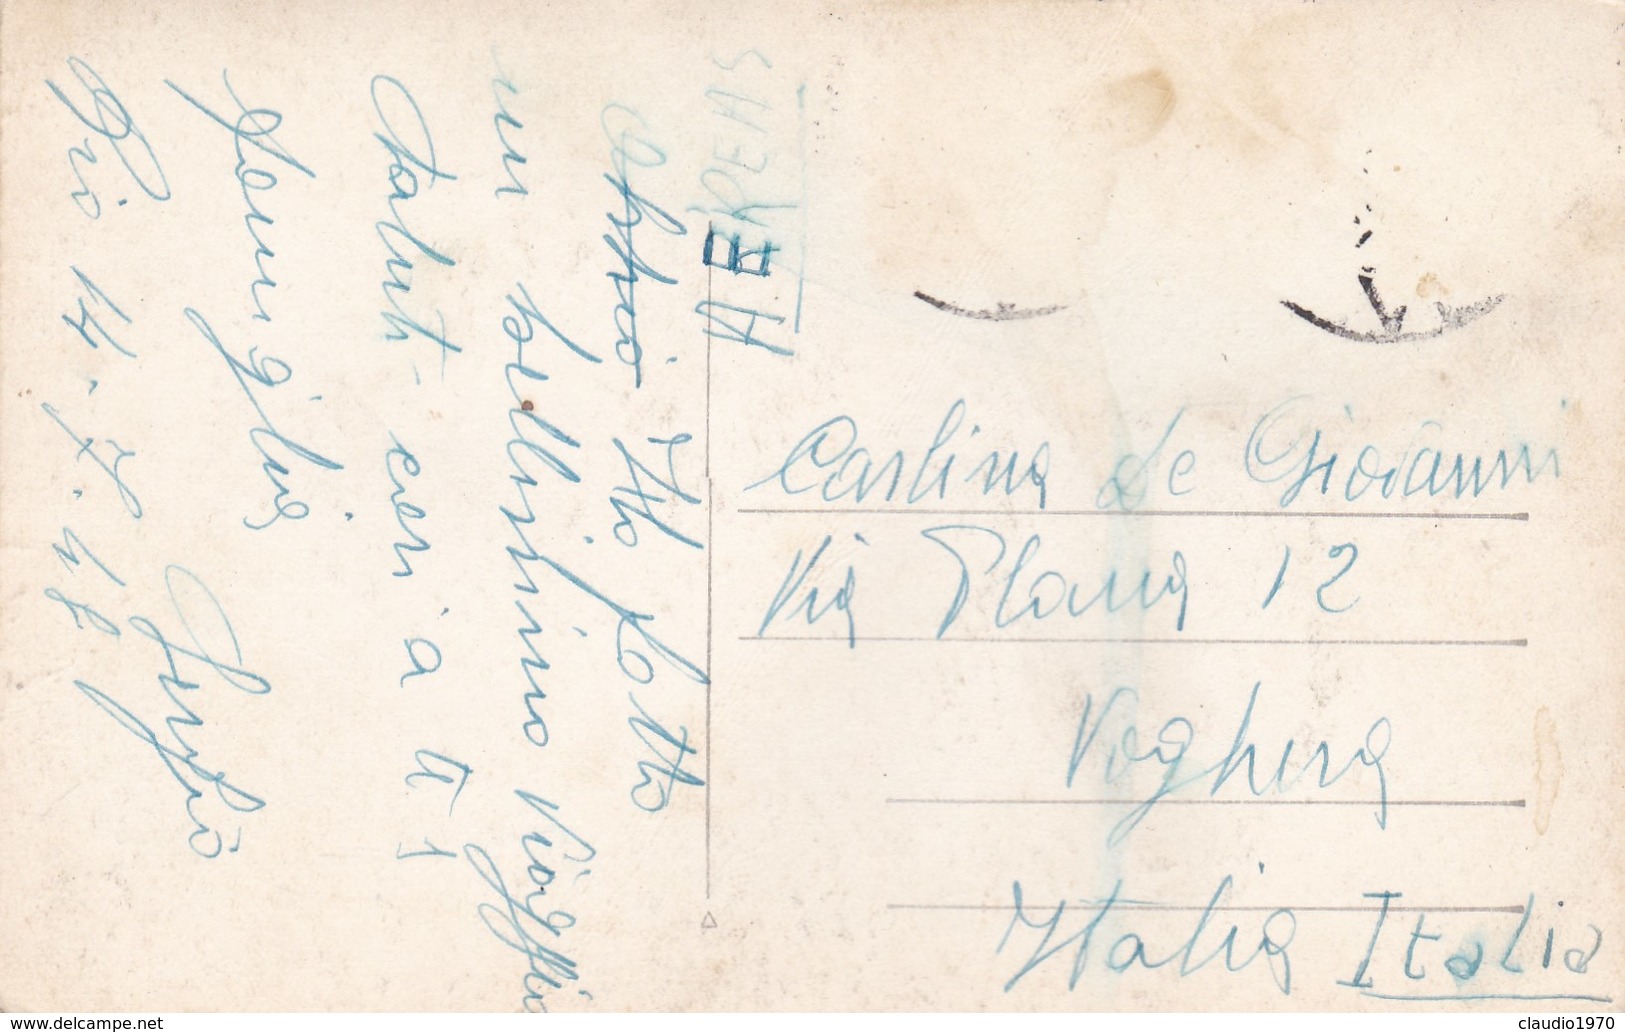 AEREAS
Ho fatto
un bellissimo viaggio
saluti cari a tt
famiglia
Sergio
Rio 14.7.48
Carlina de Giovanni
Via Plana 12
Voghera
Italia Italia
delcampe.net
claudio1970